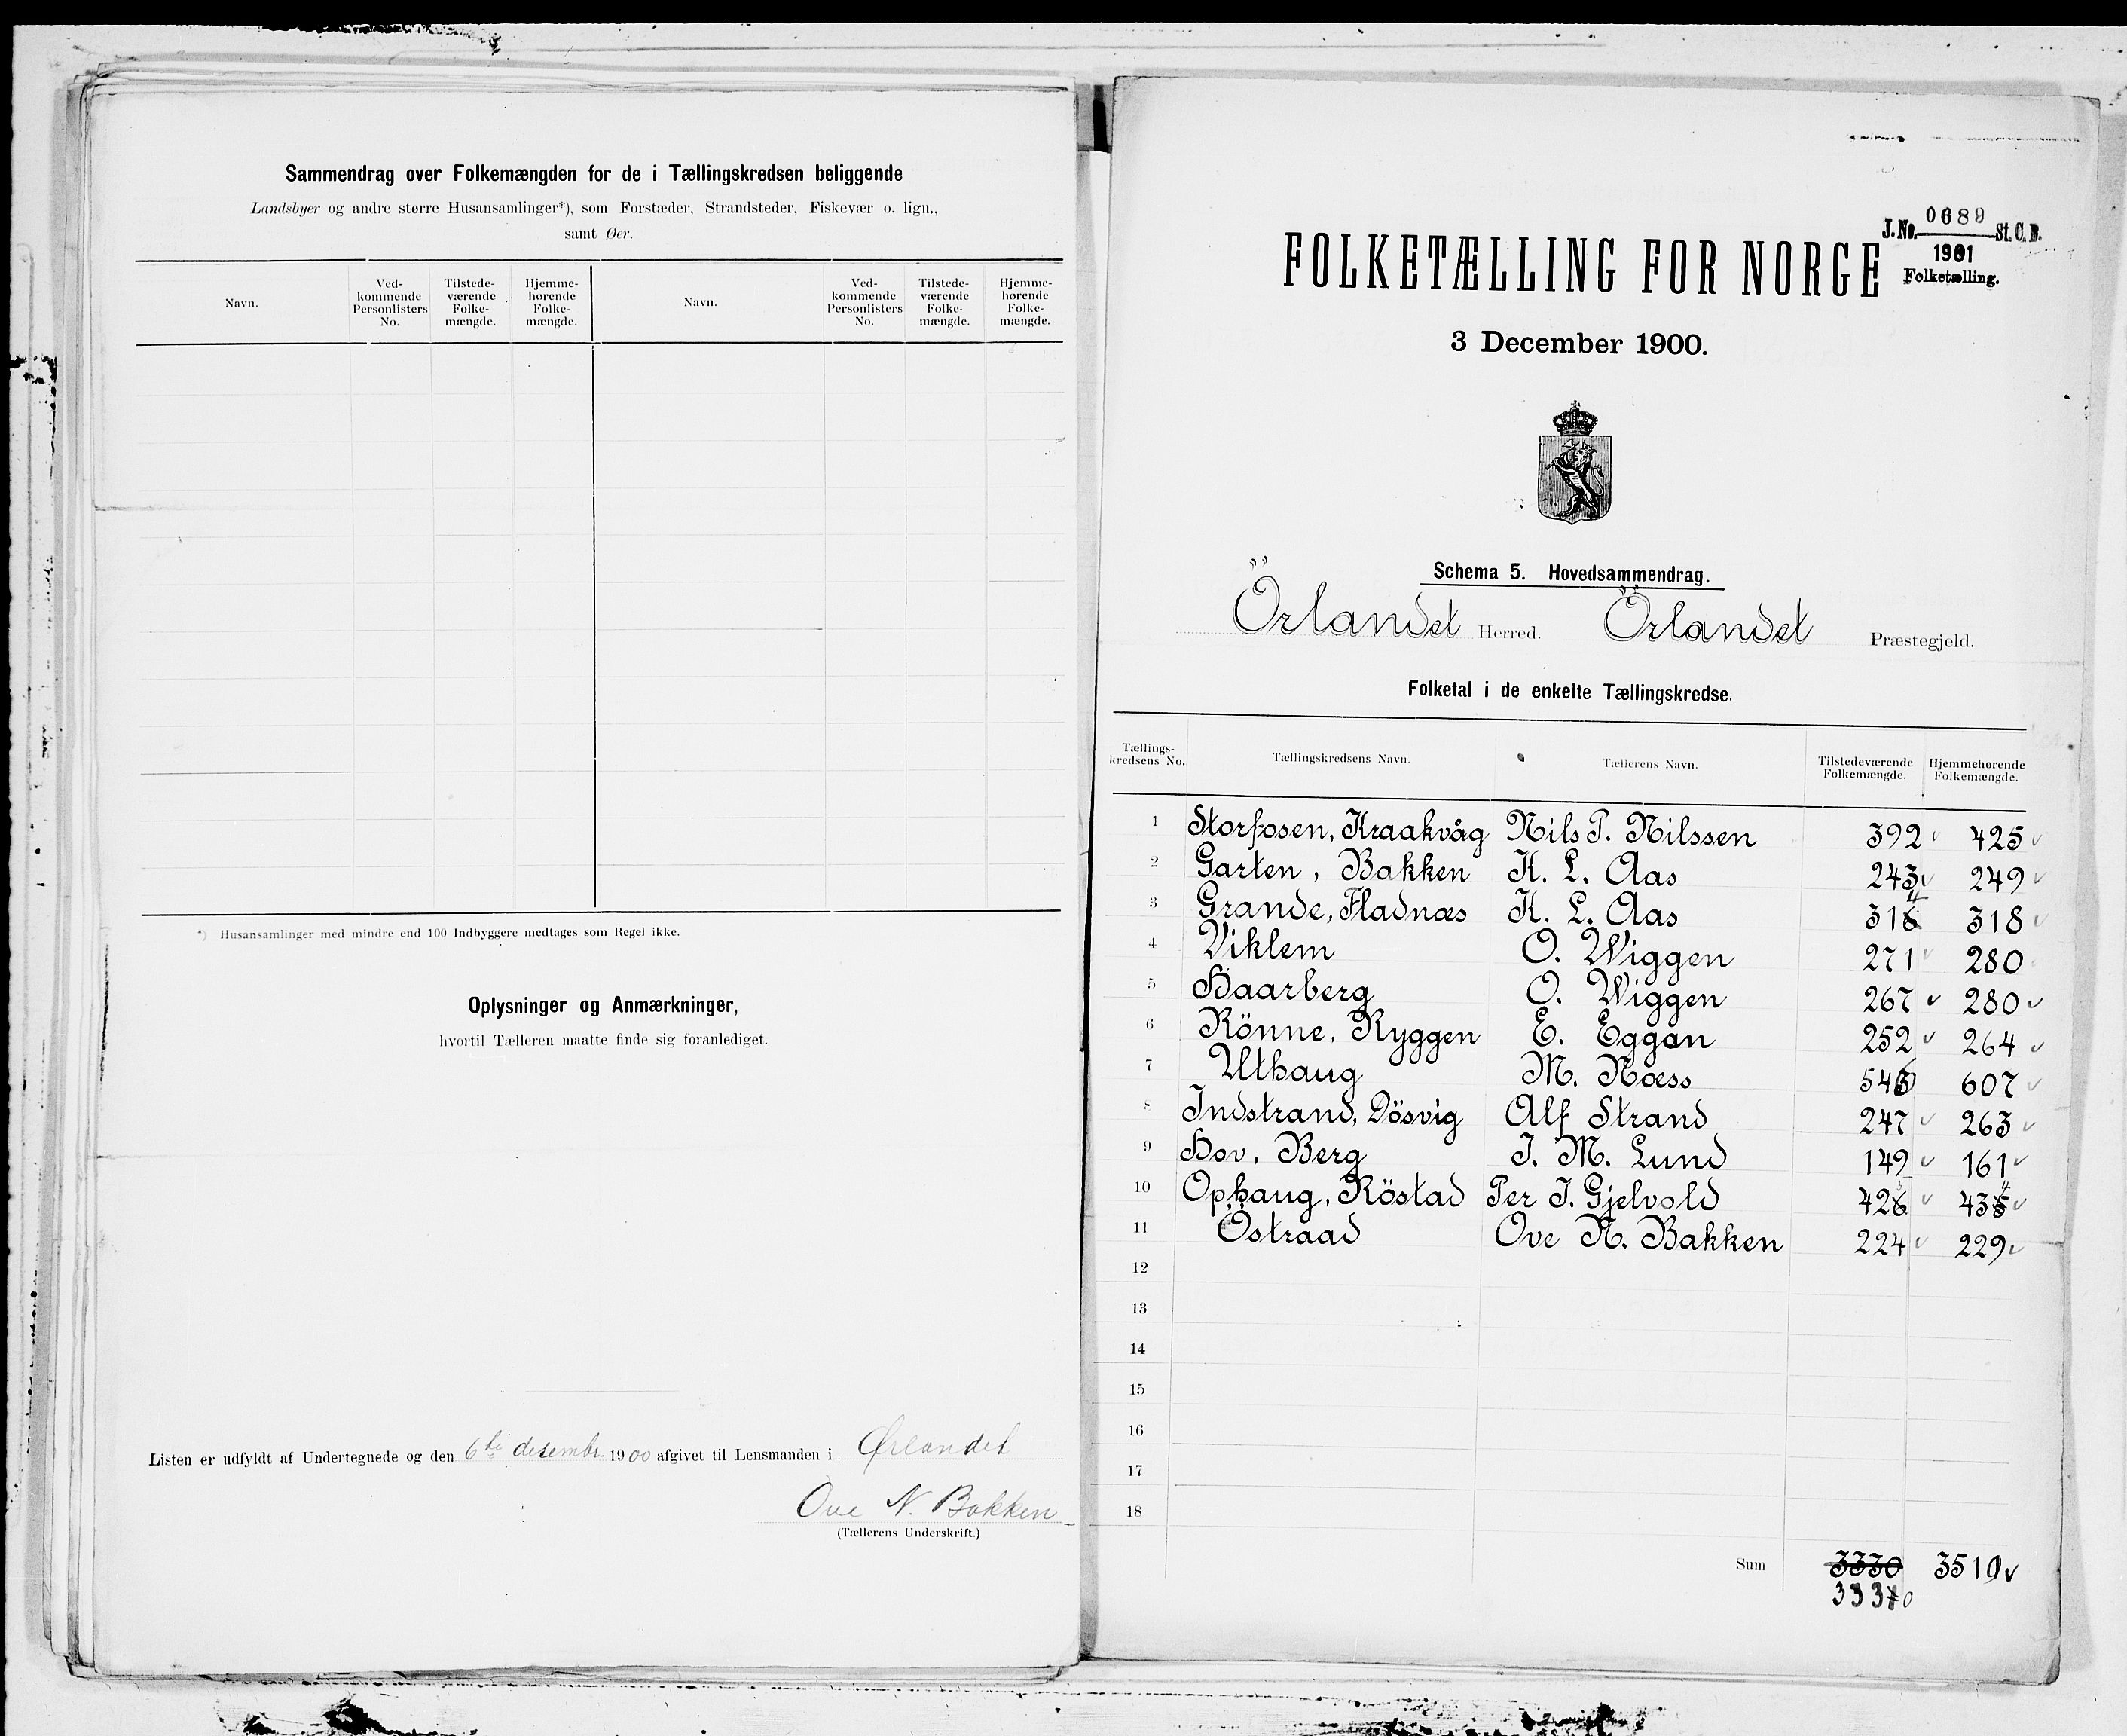 Sammendrag over Folkemængden for de i Tællingskredsen beliggende
Landsbyer og andre større Husansamlinger*), som Forstæder, Strandsteder, Fiskevær o. lign.,
samt Øer.
Navn. Ved-kommende Personlisters No. Tilstede-værende Folke-mængde. Hjemme-hørende Folke-mængde. Navn. Ved-kommende Personlisters No. Tilstede-værende Folke-mængde. Hjemme-hørende Folke-mængde.
*) Husansamlinger med mindre end 100 Indbyggere medtages som Regel ikke.
Oplysninger og Anmærkninger,
hvortil Tælleren maatte finde sig foranlediget.
Listen er udfyldt af Undertegnede og den 6te desembr 1900 afgivet til Lensmanden i Ørlandet
Ove N. Bakken
(Tællerens Underskrift.)
J. No. 0689 St. C. B.
1901
Folketælling.
FOLKETÆLLING FOR NORGE
3 December 1900.
Schema 5. Hovedsammendrag.
Örlandet Herred. Örlandet Præstegjeld.
Folketal i de enkelte Tællingskredse.
Tællings-kredsens No. Tællingskredsens Navn. Tællerens Navn. Tilstedeværende Folkemængde. Hjemmehørende Folkemængde.
1 Storfosen, Kraakvåg Nils P. Nilssen 392 425
2 Garten, Bakken K. L. Aas 243 249
3 Grande, Fladnæs K. L. Aas 314 318
4 Viklem O. Wiggen 271 280
5 Haarberg O. Wiggen 267 280
6 Rönne, Ryggen E. Eggan 252 264
7 Uthaug M. Næss 607
8 Indstrand, Dösvig Alf Strand 247 263
9 Hov, Berg J. M. Lund 149 161
10 Ophaug, Röstad Per J. Gjelvold 434
11 Östraad Ove N. Bakken 224 229
12
13
14
15
16
17
18
Sum 3330 3510
3330